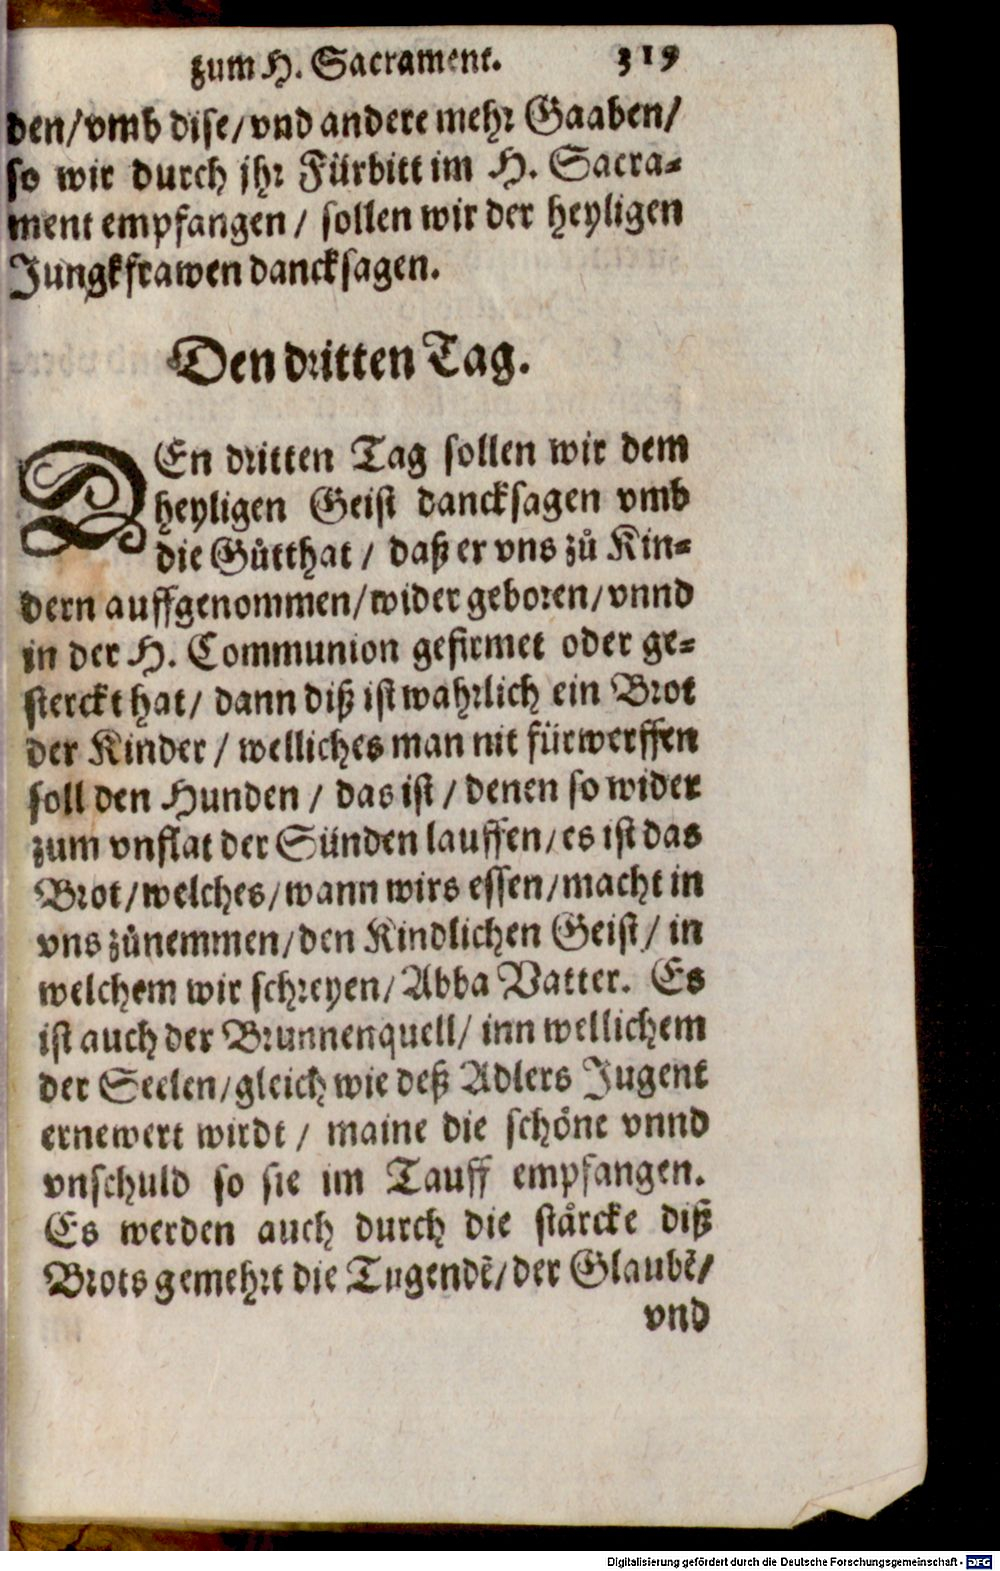 zum H. Sacrament. 319
den/ vmb dise/ vnd andere mehr Gaaben/
so wir durch jhr Fürbitt im H. Sacra-
ment empfangen / sollen wir der heyligen
Jungkfrawen dancksagen.
Den dritten Tag.
DEn dritten Tag sollen wir dem
heyligen Geist dancksagen vmb
die Gůtthat / daß er vns zů Kin-
dern auffgenommen/ wider geboren/ vnnd
in der H. Communion gefirmet oder ge-
sterckt hat/ dann diß ist wahrlich ein Brot
der Kinder / welliches man nit fürwerffen
soll den Hunden / das ist / denen so wider
zum vnflat der Sünden lauffen/ es ist das
Brot/ welches/ wann wirs essen/ macht in
vns zůnemmen/ den Kindlichen Geist/ in
welchem wir schreyen/ Abba Vatter. Es
ist auch der Brunnenquell/ inn wellichem
der Seelen/ gleich wie deß Adlers Jugent
ernewert wirdt / maine die schöne vnnd
vnschuld so sie im Tauff empfangen.
Es werden auch durch die stärcke diß
Brots gemehrt die Tugendẽ/ der Glaubẽ/
vnd
Digitalisierung gefördert durch die Deutsche Forschungsgemeinschaft - DFG